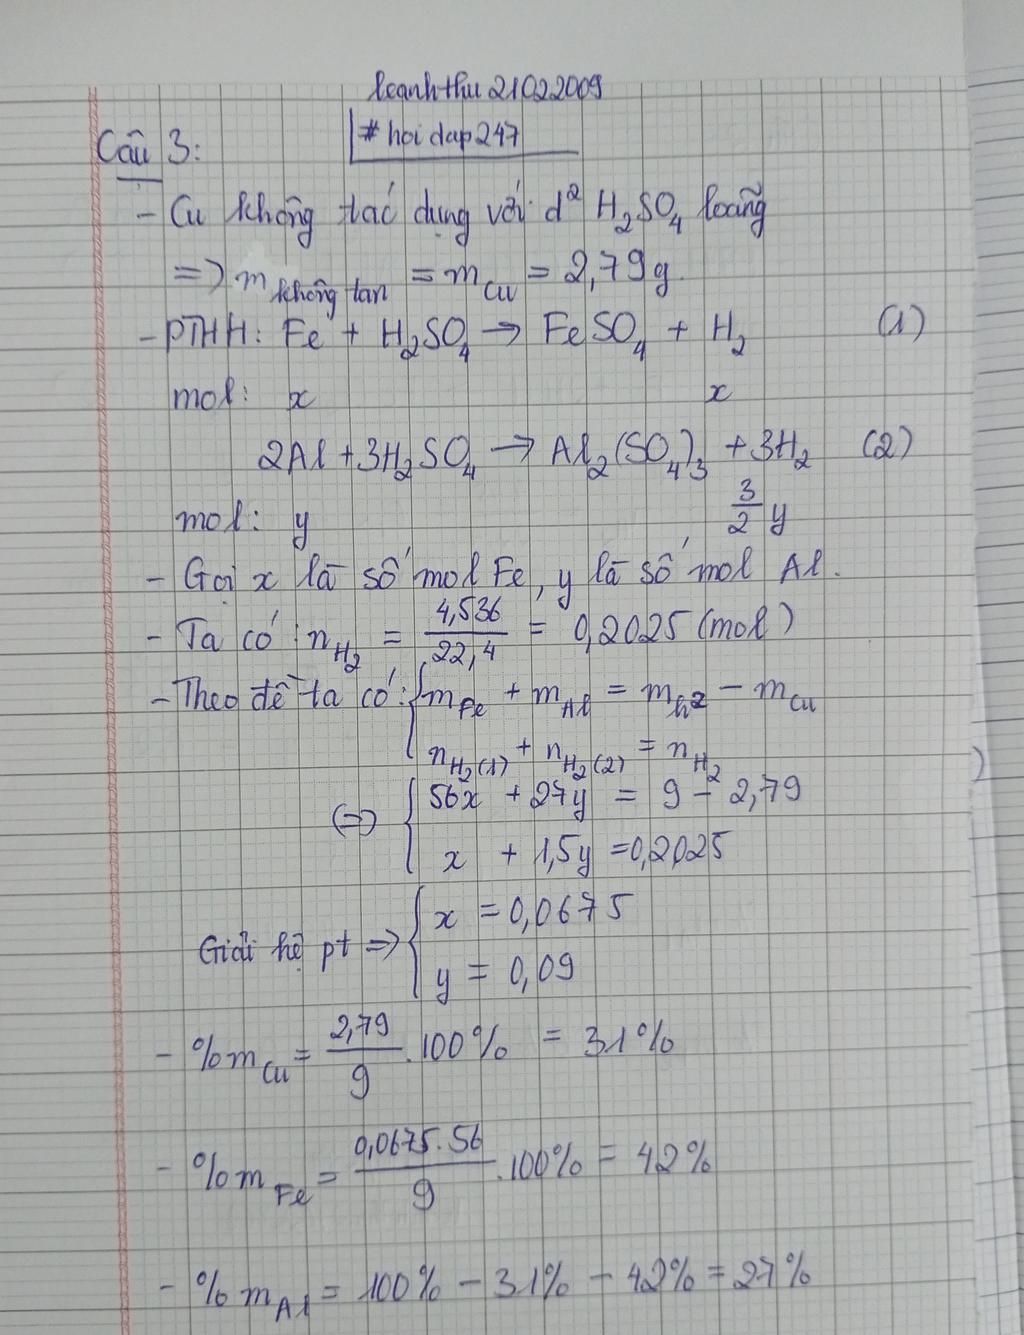 leanhthu21022009
# hoidap247
Câu 3:
- Cu không tác dụng với d² H₂SO₄ loãng
=> m không tan = m Cu = 2,79g
- PTHH: Fe + H₂SO₄ → FeSO₄ + H₂ (1)
mol: x x
2Al + 3H₂SO₄ → Al₂(SO₄)₃ + 3H₂ (2)
mol: y 3/2 y
- Gọi x là số mol Fe, y là số mol Al.
- Ta có: n H₂ = 4,536/22,4 = 0,2025 (mol)
- Theo đề ta có: { m Fe + m Al = m h² - m Cu
n H₂(1) + n H₂(2) = n H₂
(=) { 56x + 27y = 9 - 2,79
x + 1,5y = 0,2025
Giải hệ pt => { x = 0,0675
y = 0,09
- %m Cu = 2,79/9 . 100% = 31%
- %m Fe = 0,0675.56/9 . 100% = 42%
- %m Al = 100% - 31% - 42% = 27%